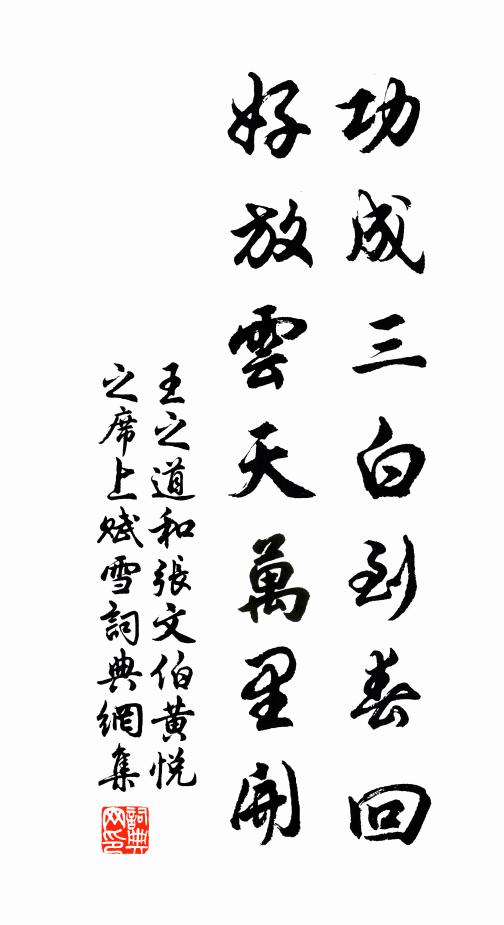 功成三白到春回
好放雲天萬里開
王之道和張文伯黄悅
之席上賦雪詞典網集
詞典
网印